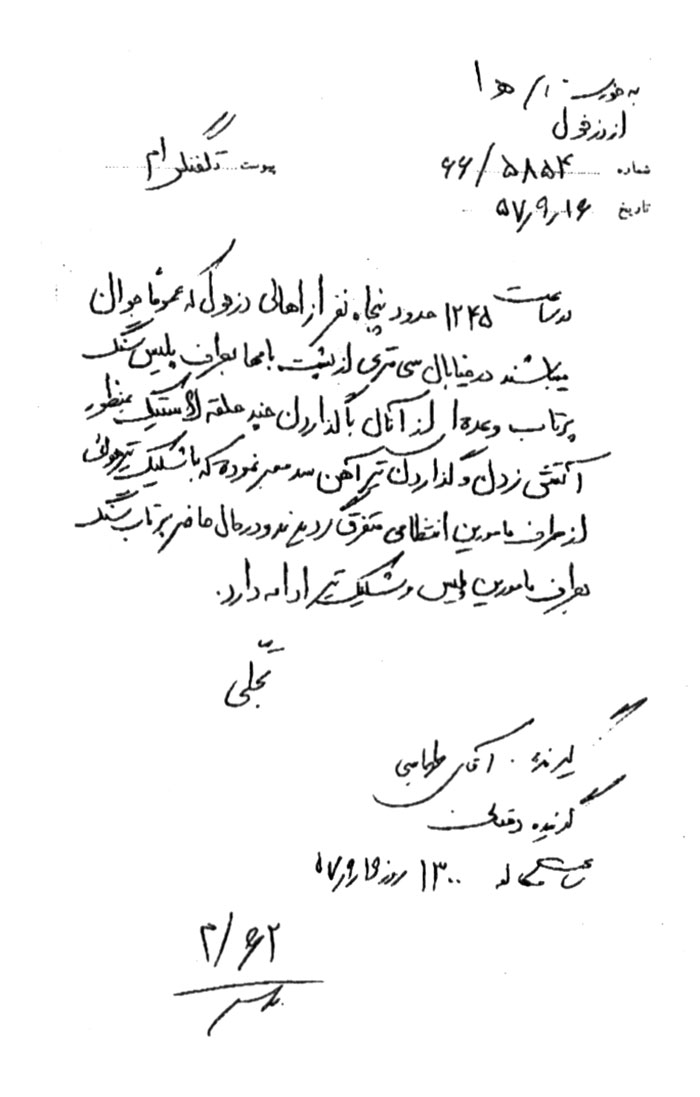 به خوزستان ۱/ ه‍ ۱
از دزفول
شماره ۶۶/۵۸۵۴
پیوست تلفنگرام
تاریخ ۵۷٫۹٫۱۶
در ساعت ۱۲۴۵ حدود پنجاه نفر از اهالی دزفول که عموماً جوان
میباشند در خیابان سی متری از پشت بامها بطرف پلیس سنگ
پرتاب وعده‌ای از آنان با گذاردن چند حلقه لاستیک بمنظور
آتش زدن و گذاردن تیر آهن سد معبر نموده که با شلیک تیر هوائی
از طرف مامورین انتظامی متفرق گردیدند و در حال حاضر پرتاب سنگ
بطرف مامورین پلیس و شلیک تیر ادامه دارد.
تجلی
گیرنده آقای طهماسبی
گوینده
ساعت مکالمه ۱۳۰۰ روز ۵۷٫۹٫۱۶
۳/۶۲